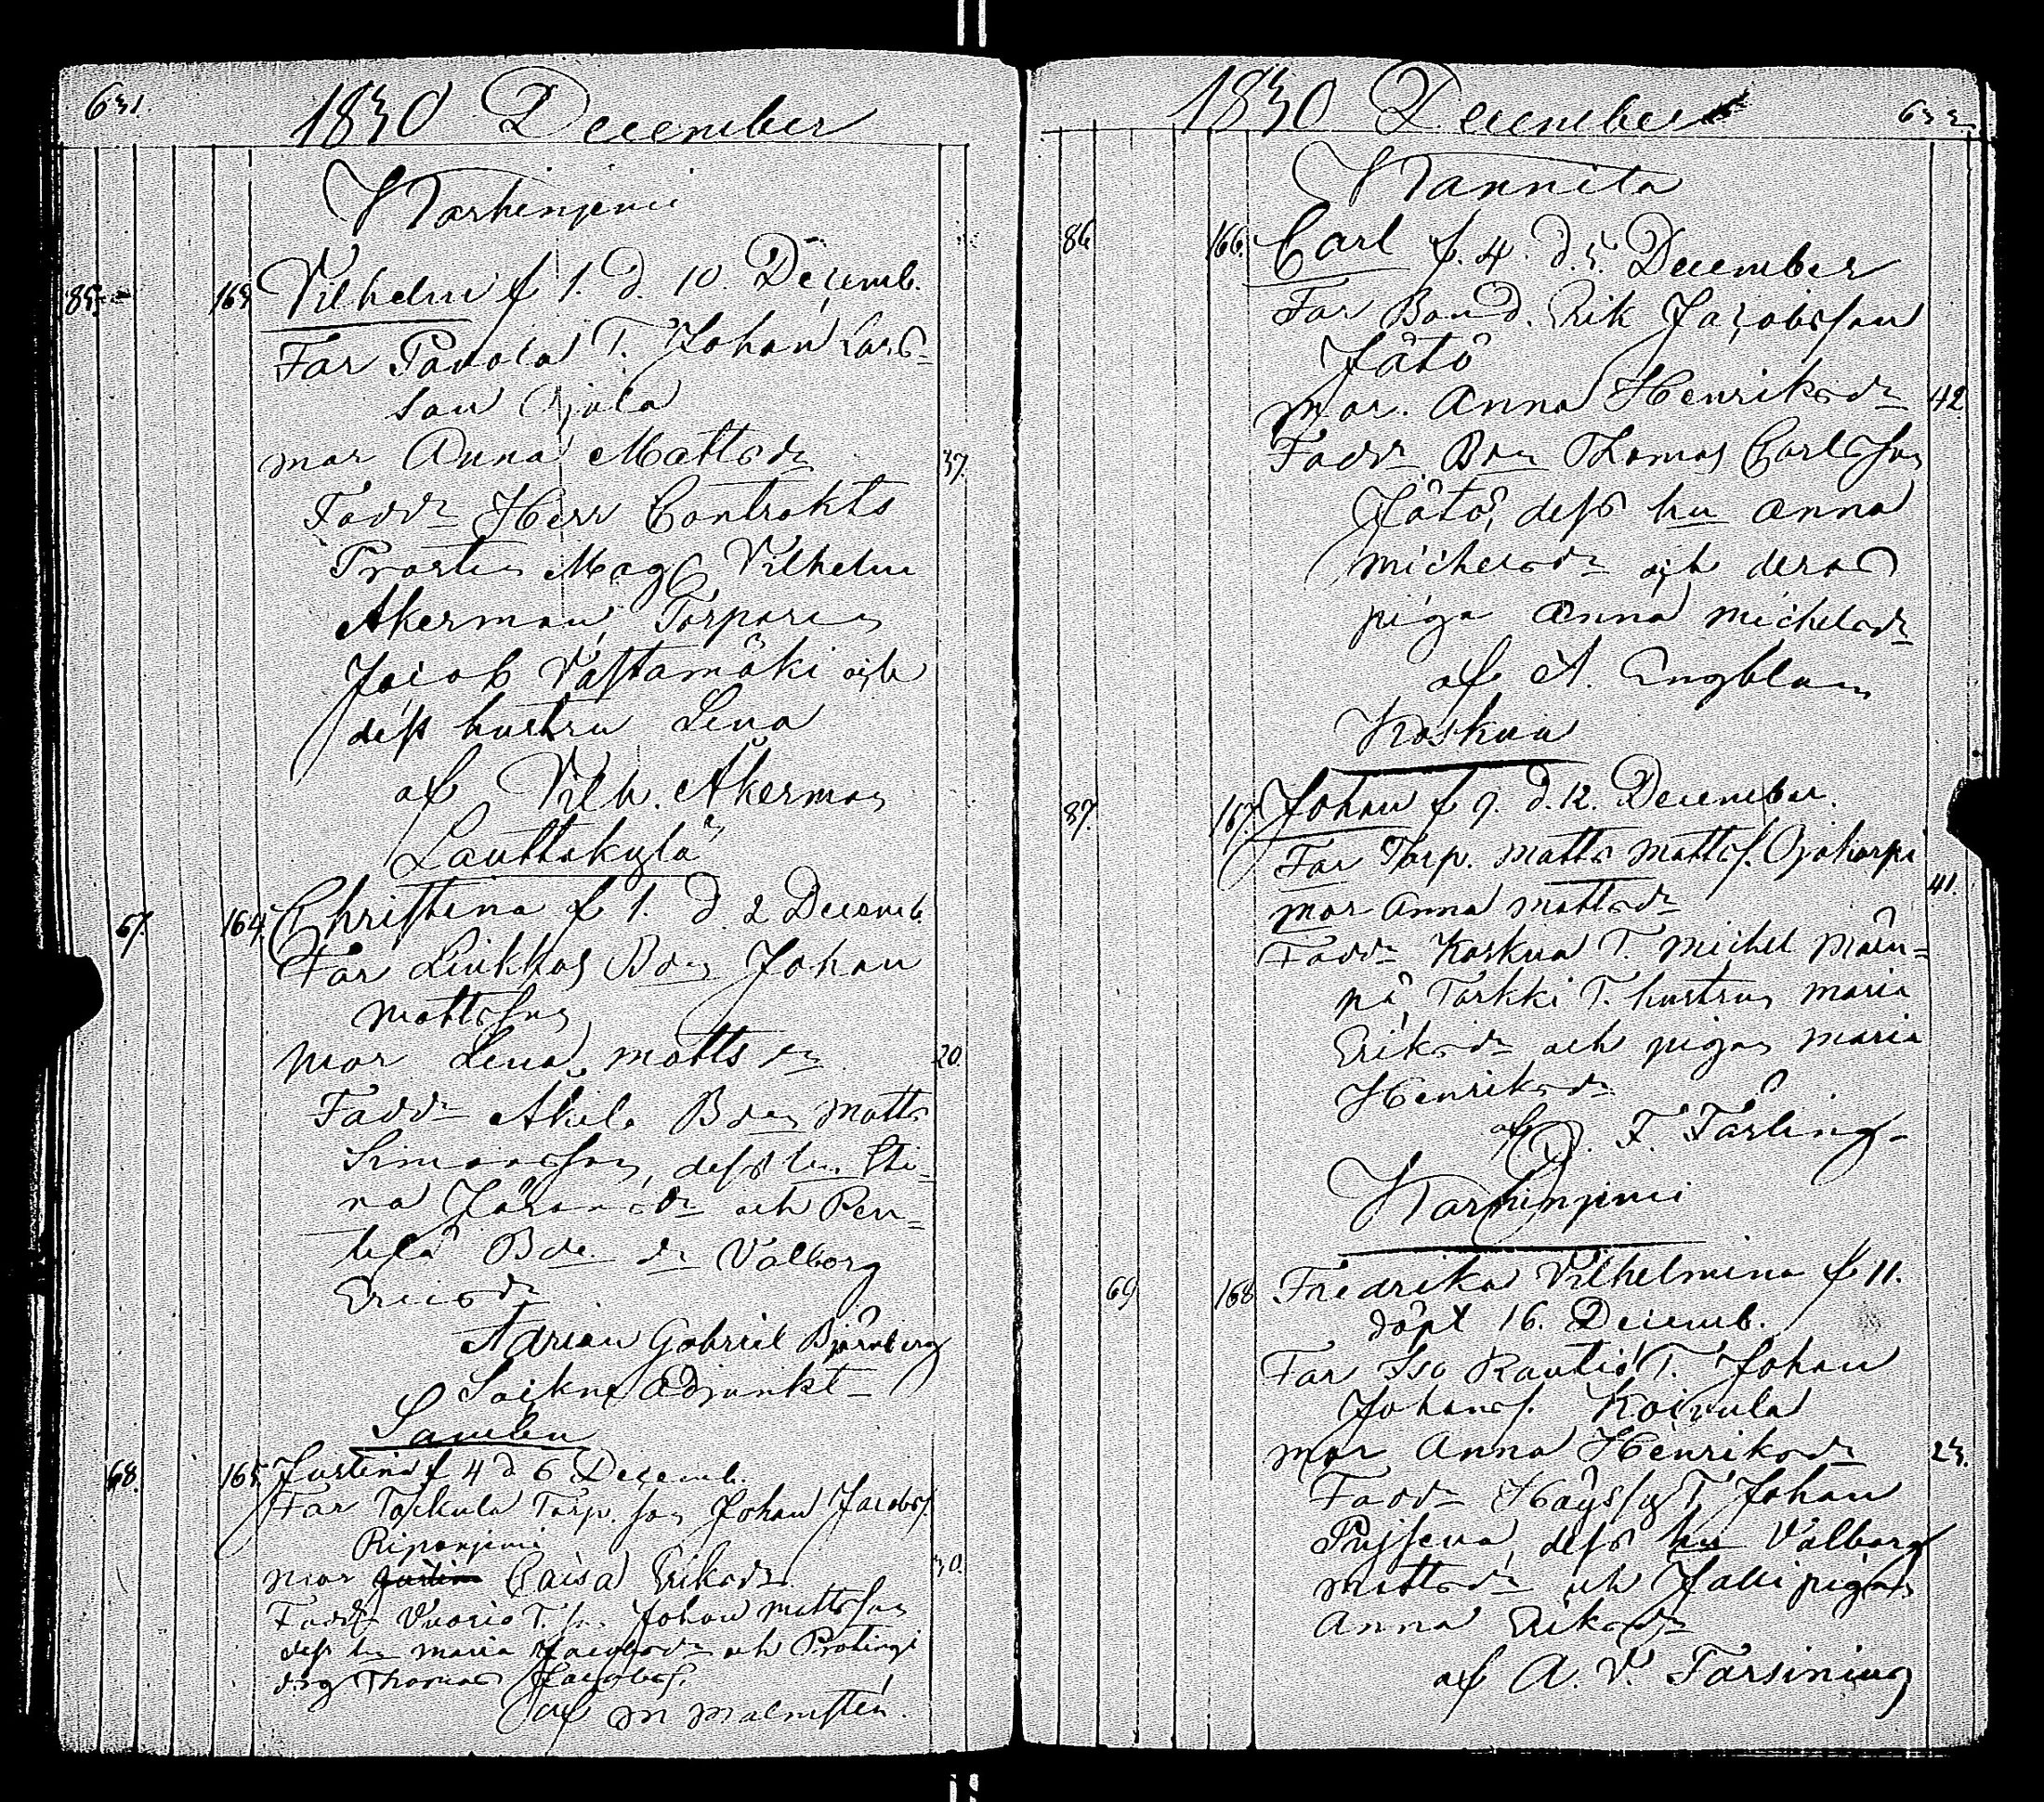 631.
1830 December
Karhinjemi
85. 163. Vilhelm f 1. d. 10. Decemb.
Far Pavola T. Johan Lars-
son Ojala
mor Anna Mattsdr 37.
Faddr Herr Contrakts
Prosten Mag Vilhelm
Åkerman, Torparen
Jacob Västamäki och
dess hustru Lena
af Vilh. Åkerman
Lauttakylä
67. 164. Christina f 1. d 2 Decemb.
Far Liukkas Bon Johan
Mattsson
Mor Lena Mattsdr 20.
Faddr Akila Bon Matts
Simonsson, dess hu Sti-
na Göransdr och Pen-
tilä Bde dr Valborg
Ericsdr
Adrian Gabriel Björnberg
Sockne Adjunkt
Samlu
68. 165. Justina f 4 d 6 Decemb.
Far Torkula Torp. son Johan Jacobss.
Ripanjemi
mor Caisa Eriksdr. 30.
Faddr Vuorio T. son Johan Mattsson
dess hu Maria Jacobsdr och
drg Thomas Jacobss.
af M Malmsten.
1830 December
632
Kannita
86 166. Carl f. 4. d. 5. December
Far Bond. Erik Jacobsson
Jätö
mor. Anna Henriksdr 42
Faddr Bon Thomas Carlsson
Jätö, dess hu Anna
Michelsdr och deras
piga Anna Michelsdr
af A. Engblom
Koskua
87. 167. Johan f 9. d. 12. December.
Far Torp. Matts Mattss. Ojaharju
mor Anna Mattsdr 41.
Faddr Koskua T. Michel Män-
pä, Tarkki T. hustrun Maria
Eriksdr och pigan Maria
Henriksdr
af F. Färling
Karhinjemi
69 168 Fredrika Vilhelmina f 11.
döpt 16. Decemb.
Far Iso Rautio T. Johan
Johanss. Koivula
mor Anna Henriksdr 23.
Faddr T Johan
dess hu Valborg
Mattsdr och Jalli pigan
Anna Eriksdr
af A. V. Farsining